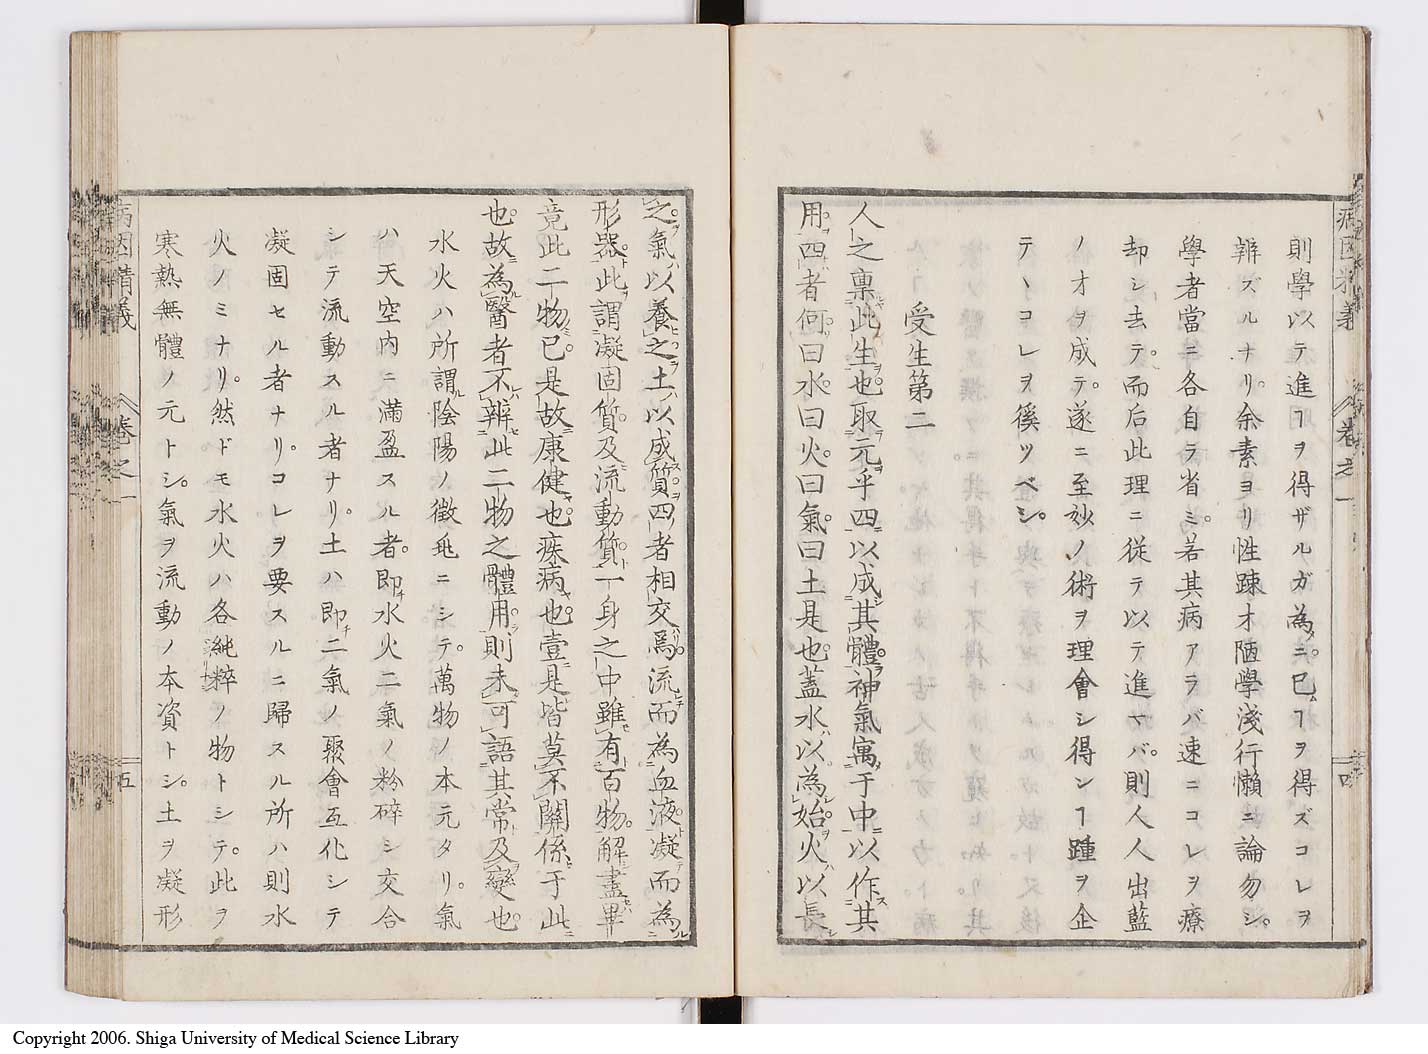 則學以テ進ヿヲ得ザルガ為ニ。已ムヿヲ得ズコレヲ
辨ズルナリ。余素ヨリ性踈才陋學淺行懶ニ論勿シ。
學者當ニ各自ラ省ミ。若其病アラバ速ニコレヲ療
却シ去テ。而后此理ニ従テ以テ進マバ。則人人出藍
ノオヲ成テ。遂ニ至妙ノ術ヲ理會シ得ンヿ踵ヲ企
テヽコレヲ徯ツベシ。
受生第二
人之稟此生也取元乎四以成其體神氣寓于中以作其
用四者何曰水曰火曰氣曰土是也蓋水以為始火以長
之氣以養之土以成質四者相交焉流而為血液凝而為
形器此謂凝固質及流動質一身之中雖有百物解盡畢
竟此二物已是故康健也疾病也壹是皆莫不關係于此
也故為醫者不辨此二物之體用則未可語其常及變也
水火ハ所謂陰陽ノ徴兆ニシテ。萬物ノ本元タリ。氣
ハ天空内ニ滿盈スル者。即水火二氣ノ粉碎シ交合
シテ流動スル者ナリ。土ハ即二氣ノ聚會互化シテ
凝固セル者ナリ。コレヲ要スルニ歸スル所ハ則水
火ノミナリ。然ドモ水火ハ各純粹ノ物トシテ。此ヲ
寒熱無體ノ元トシ。氣ヲ流動ノ本資トシ。土ヲ凝形
病因精義
卷之一
四
五
Copyright 2006. Shiga University of Medical Science Library